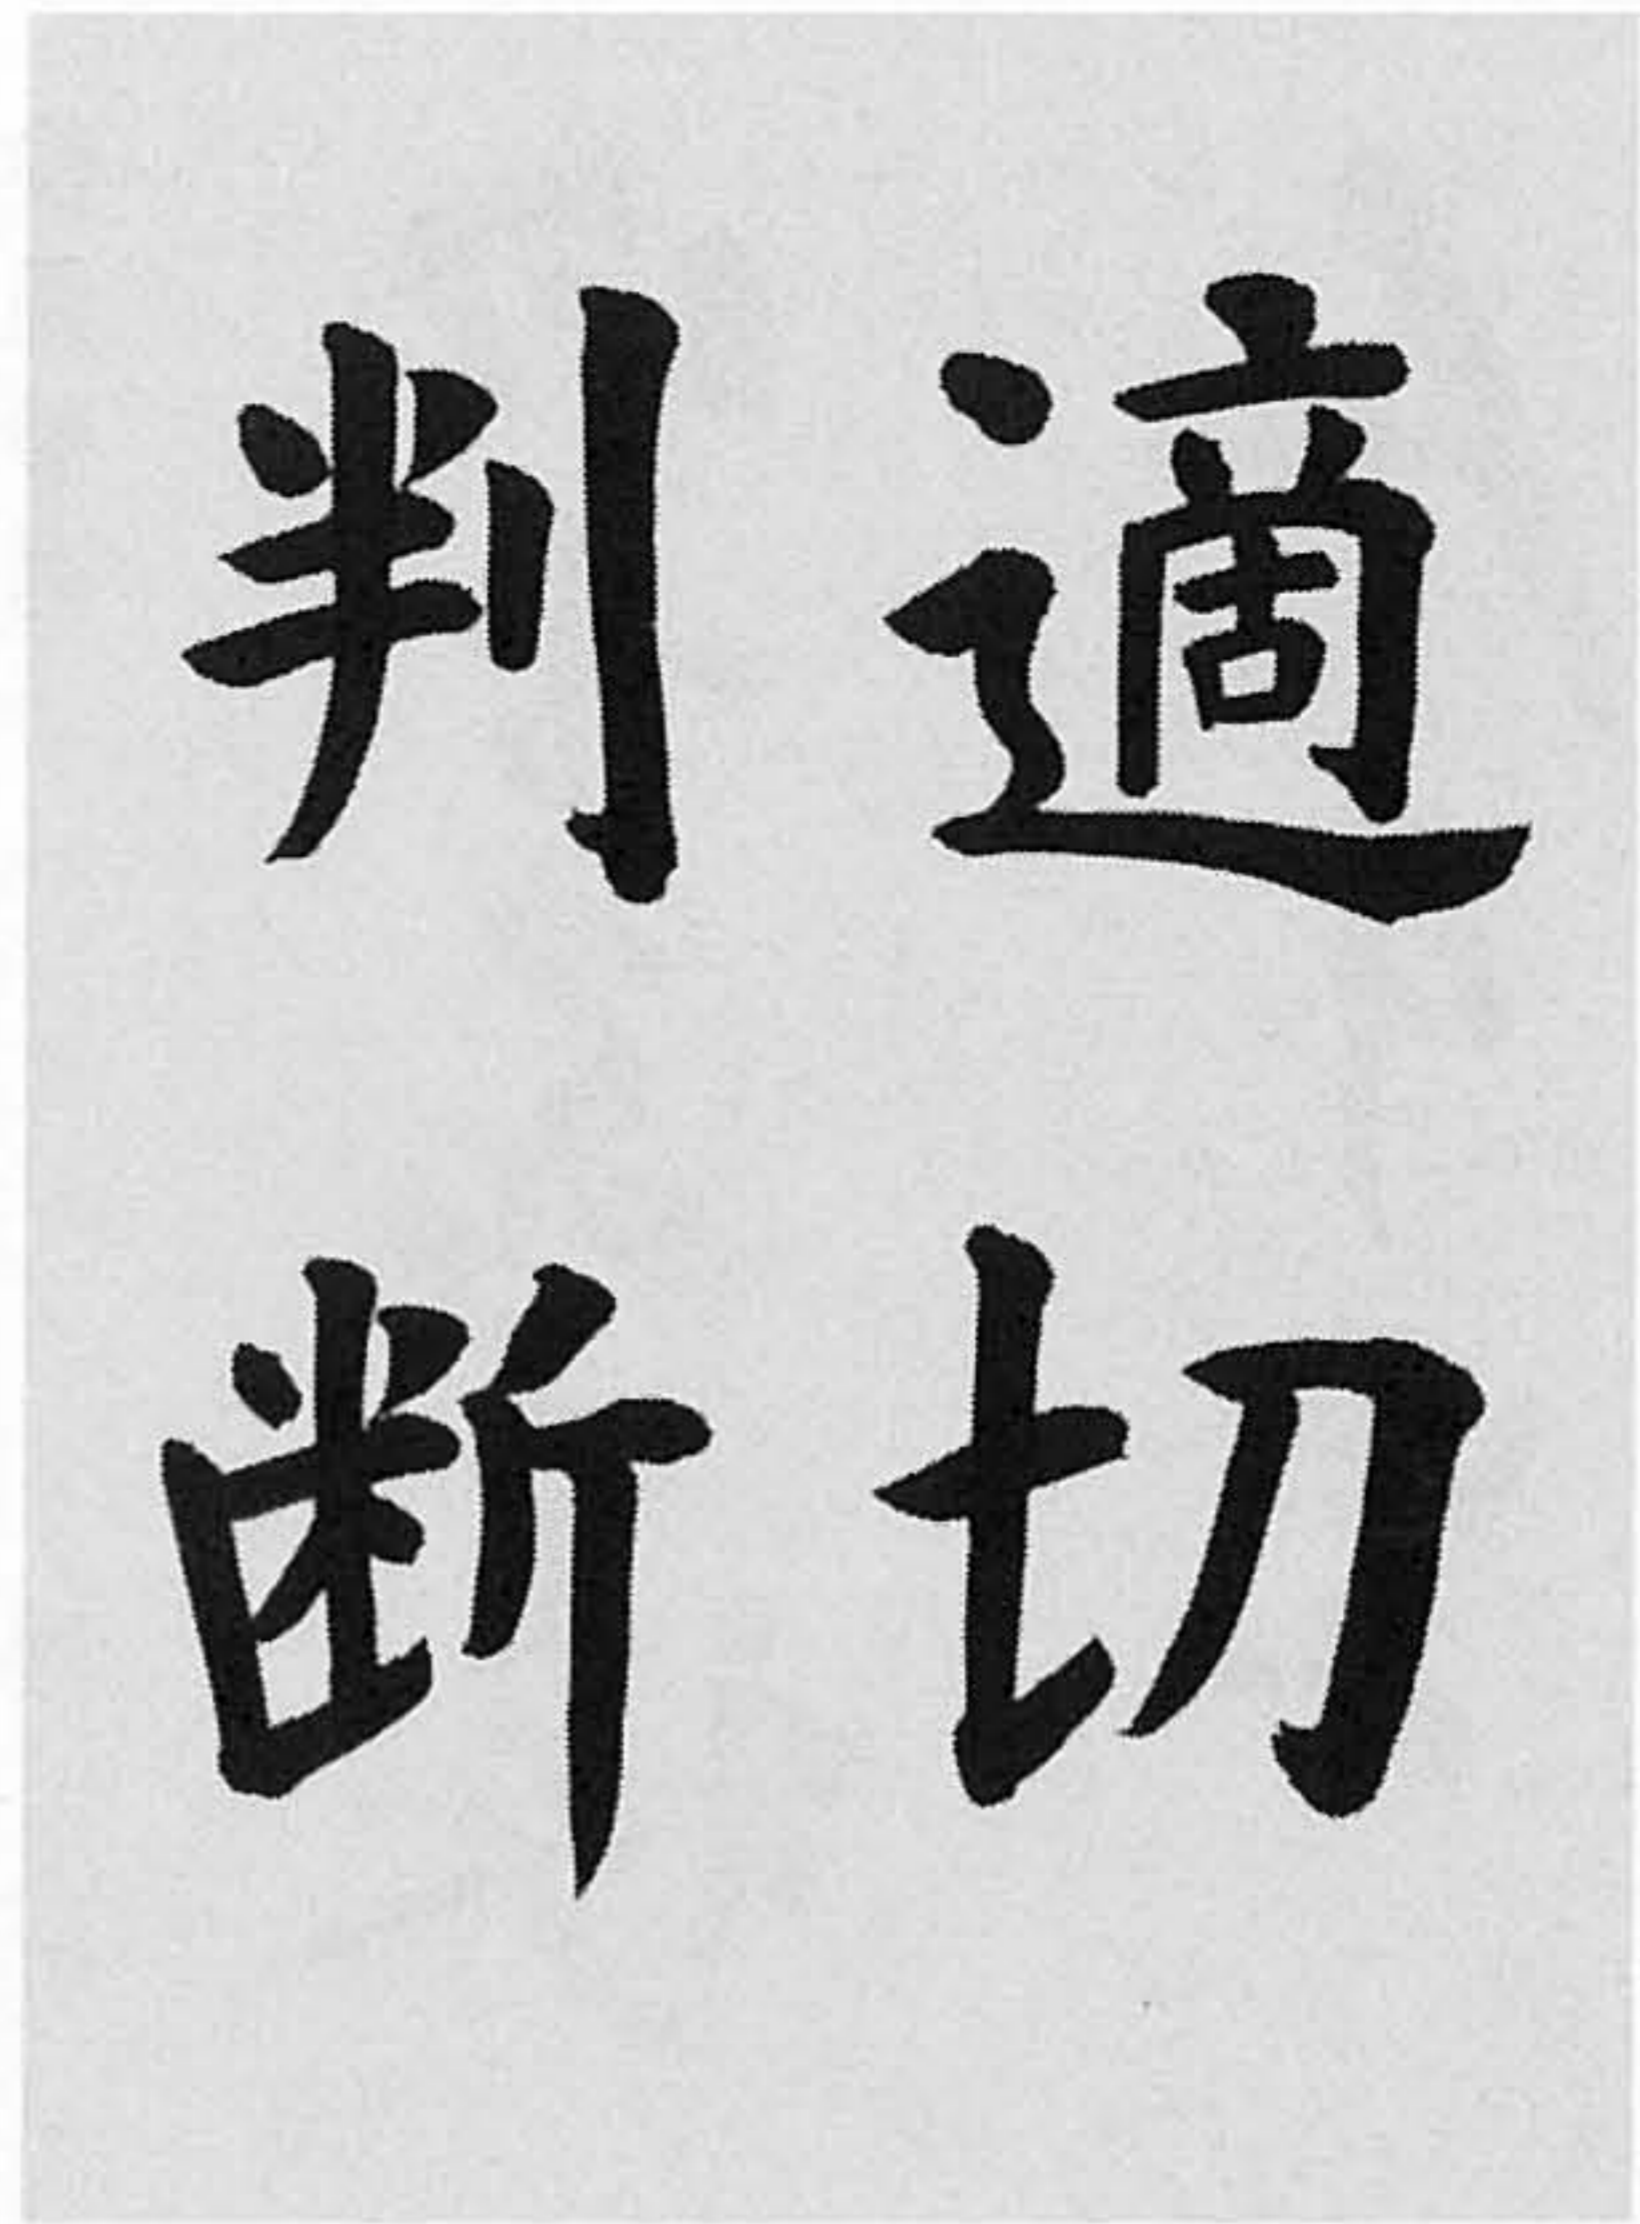 適切
判断